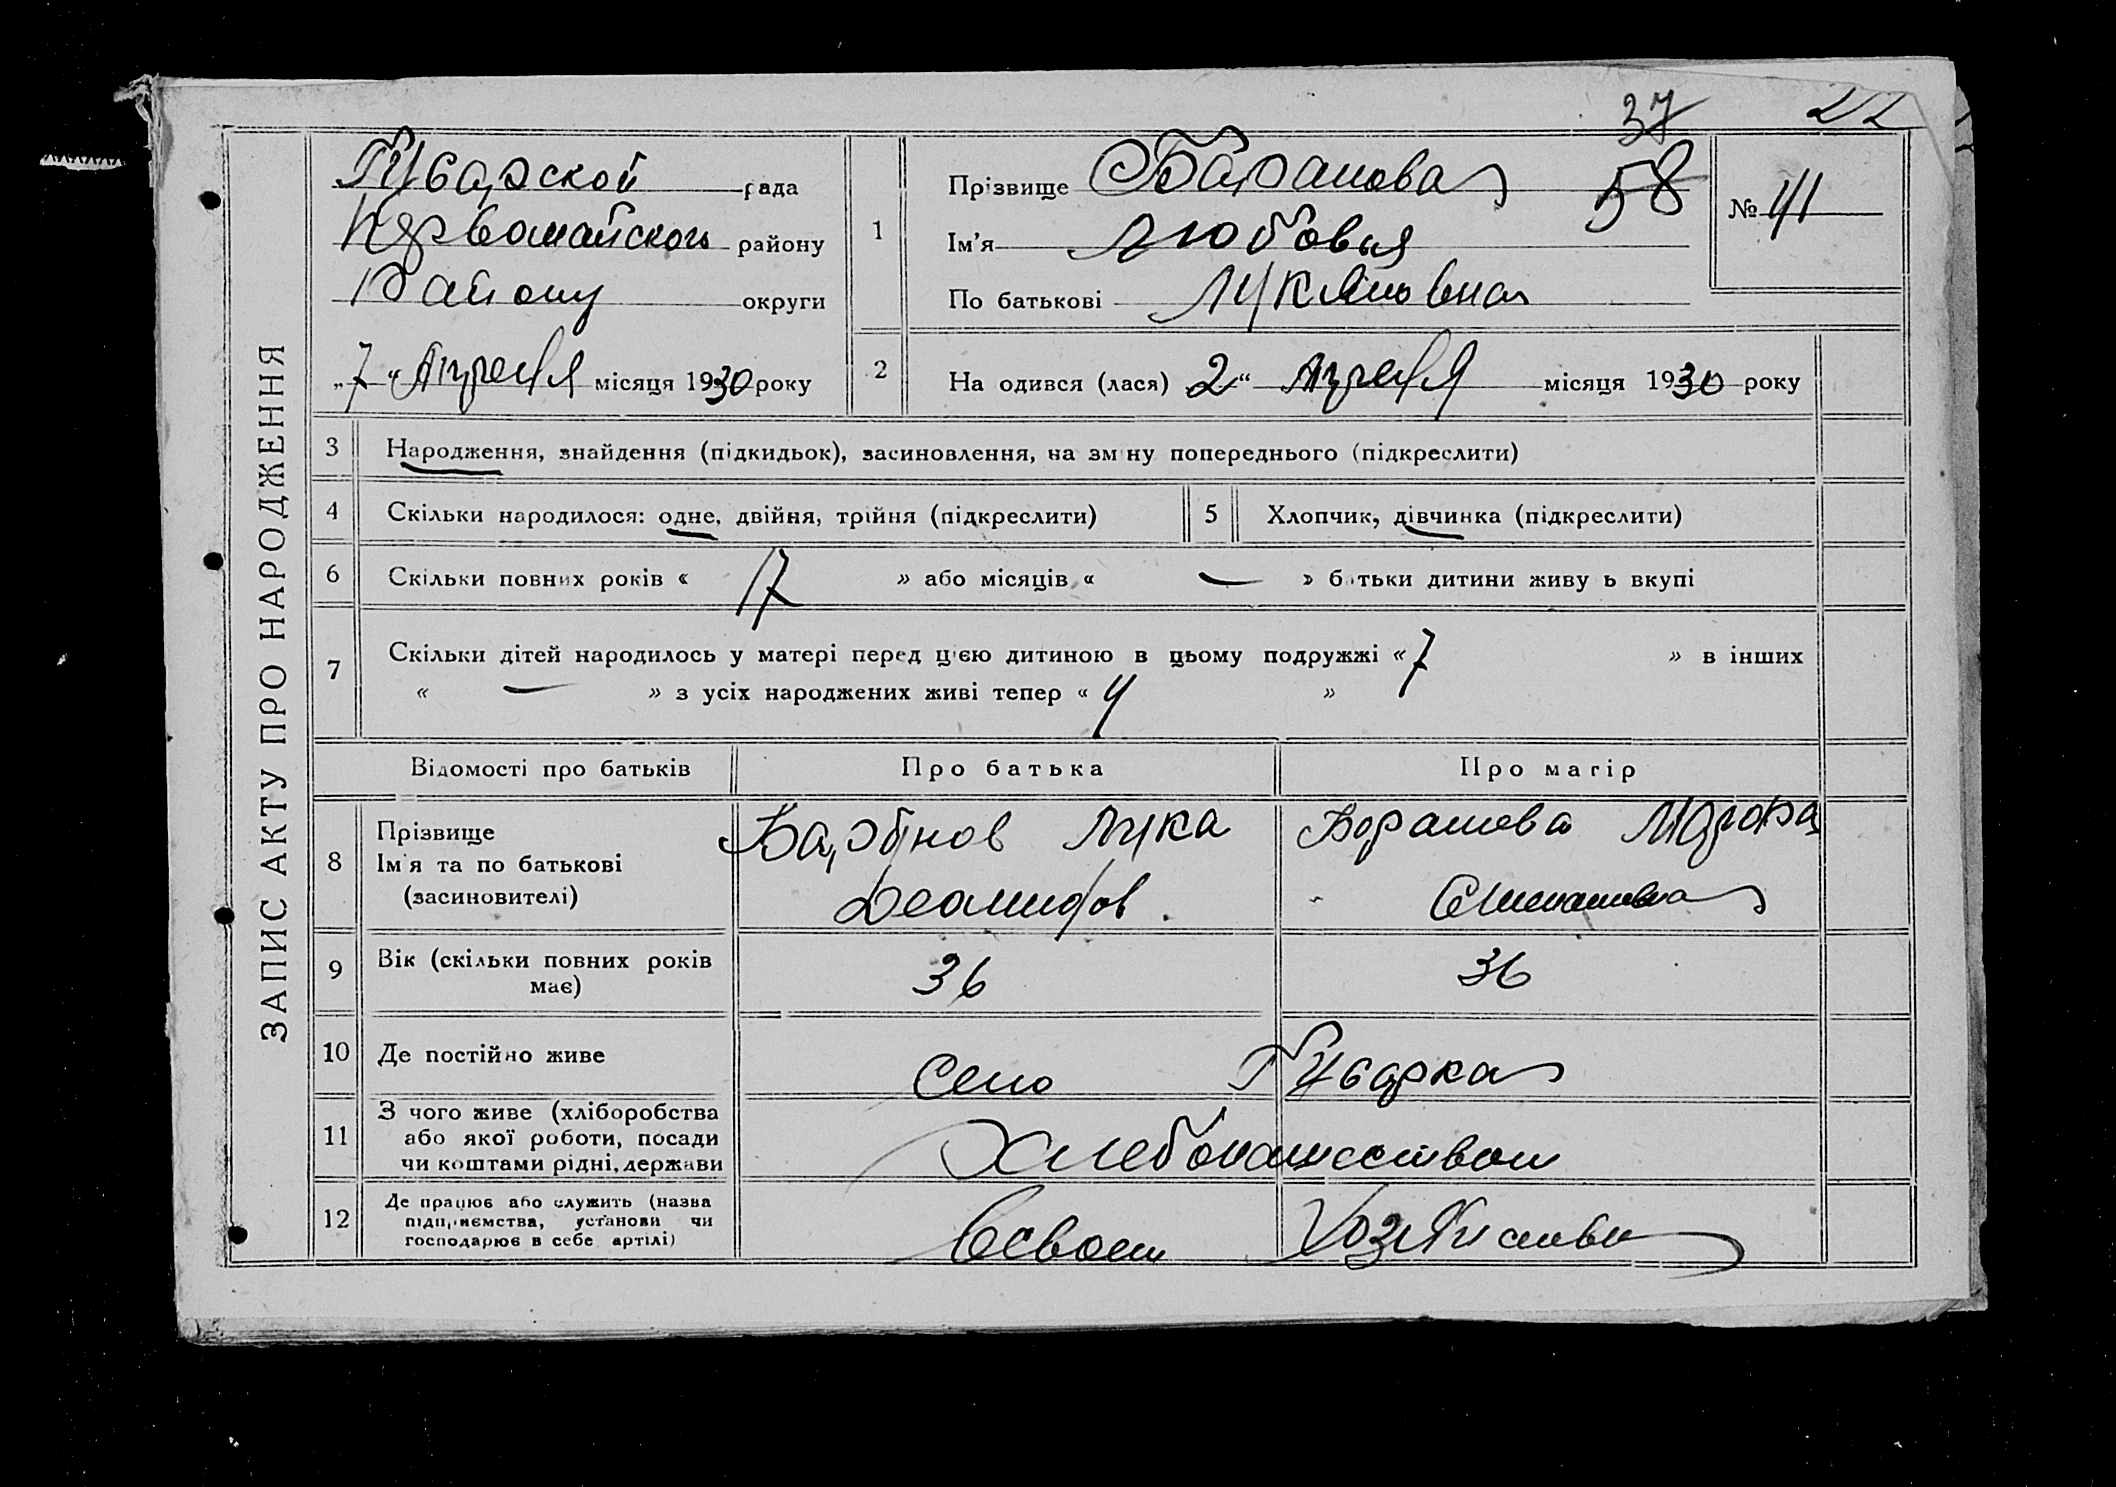 37 22
ЗАПИС АКТУ ПРО НАРОДЖЕННЯ
Губарской рада
Первомайского району
Району округи
„7“ Апреля місяця 1930 року
1 Прізвище Баранова 58
Ім'я Любовья
По батькові Лукяновна
№ 41
2 На одився (лася) 2“ Апреля місяця 1930 року
3 Народження, знайдення (підкидьок), засиновлення, на зм ну попереднього (підкреслити)
4 Скільки народилося: одне, двійня, трійня (підкреслити)
5 Хлопчик, дівчинка (підкреслити)
6 Скільки повних років « 17 » або місяців « — » батьки дитини живу ь вкупі
7 Скільки дітей народилось у матері перед цією дитиною в цьому подружжі « 7 » в інших
« — » з усіх народжених живі тепер « 4 »
Відомості про батьків Про батька Про матір
8 Прізвище
Ім'я та по батькові
(засиновителі)
Баранов Лука
Борашова
9 Вік (скільки повних років
має)
36 36
10 Де постійно живе Село Губарка
11 З чого живе (хліборобства
або якої роботи, посади
чи коштами рідні, держави
Хлебопашеством
12 Де працює або служить (назва
підприємства, установи чи
господарює в себе артілі)
Всвоем Хозяйстве